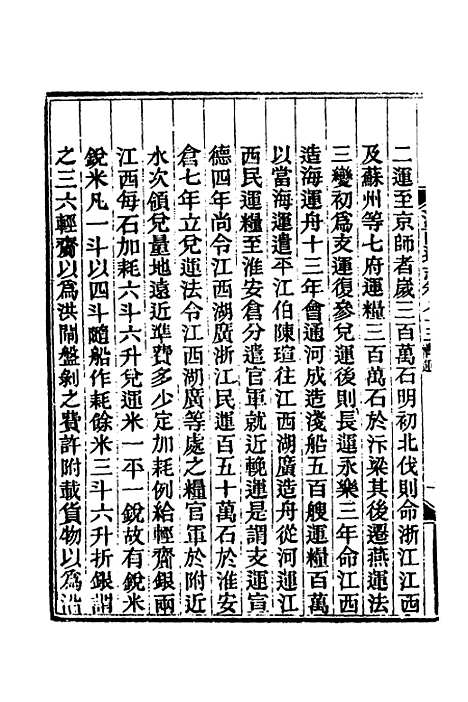 二運至京師者歲三百萬石明初北伐則命浙江江西
及蘇州等七府運糧三百萬石於汴梁其後遷燕運法
三變初爲支運復參兌運後則長運永樂三年命江西
造海運舟十三年會通河成造淺船五百艘運糧百萬
以當海運遣平江伯陳瑄往江西湖廣造舟從河運江
西民運糧至淮安倉分遣官軍就近輓運是謂支運宣
德四年尚令江西湖廣浙江民運百五十萬石於淮安
倉七年立兌運法令江西湖廣等處之糧官軍於附近
水次領兌量地遠近準費多少定加耗例給輕齎銀兩
江西每石加耗六斗六升兌運米一平一銳故有銳米
銳米凡一斗以四斗隨船作耗餘米三斗六升折銀謂
之三六輕齎以爲洪閘盤剝之費許附載貨物以爲沿